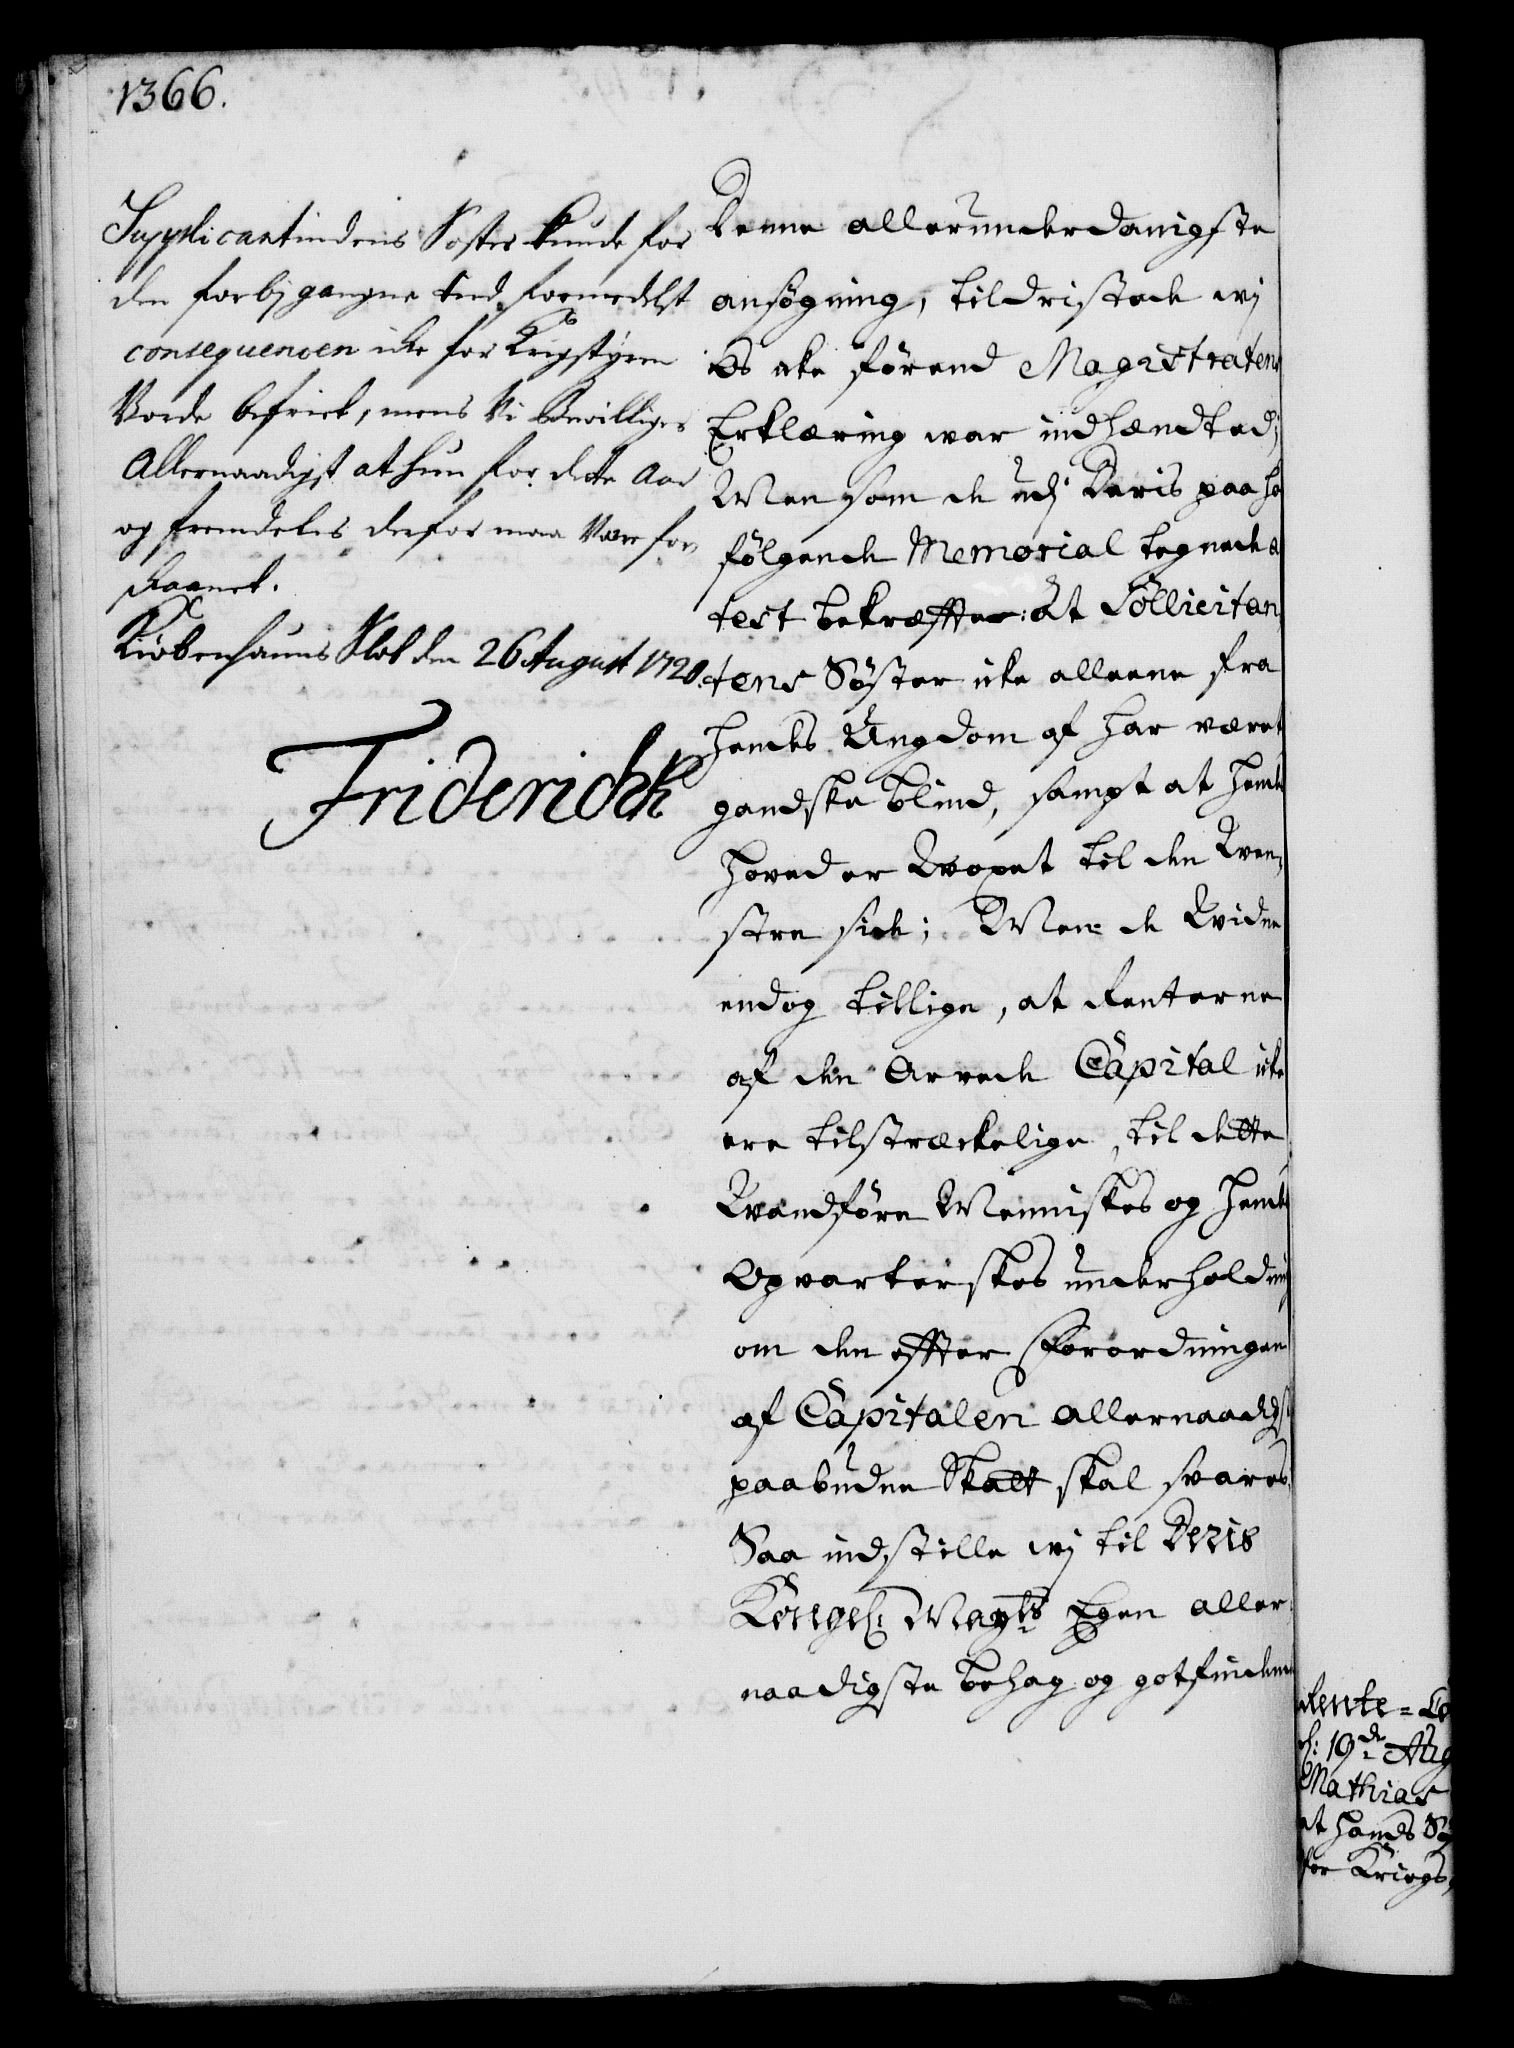 1366.
Supplicantindens Søster kunde for
den forbigangne tid formedelst
consequencen icke for Krigstyren
Vorde befriet, mens Vi bevilliger
Allernaadigst at hun for dette Aar
og fremdeles derfor maa Være for
skaanet.
Kiøbenhauns Slot den 26 August 1720.
Friderich R
Denne allerunderdanigste
ansøgning, tildristede wj
Os icke førend Magistratens
Erklæring war indhændted;
Men som de udj Deris paa ho
følgende Memorial tegnede a
test bekræffter: At Sollicitan
tens Søster icke alleene fra
hendes Ungdom af har været
gandske blind, sampt at hendes
hoved er Voxet til den Ven,
stre side; Men de Vidne
endog tillige, at Renterne
af den Arvede Capital icke
ere tilstræckelige, til dette
Vandføre Menniskes og hendes
Opvarterskes underholdning
om den effter Forordningen
af Capitalen allernaadigst
paabudne Skatt skal svares,
Saa indstille wj til Deris
Kongel: Mayts Egen aller
naadigste behag og gotfindende
Rente=
19de Aug
Mathias
at hands Sø
for Kriegs,